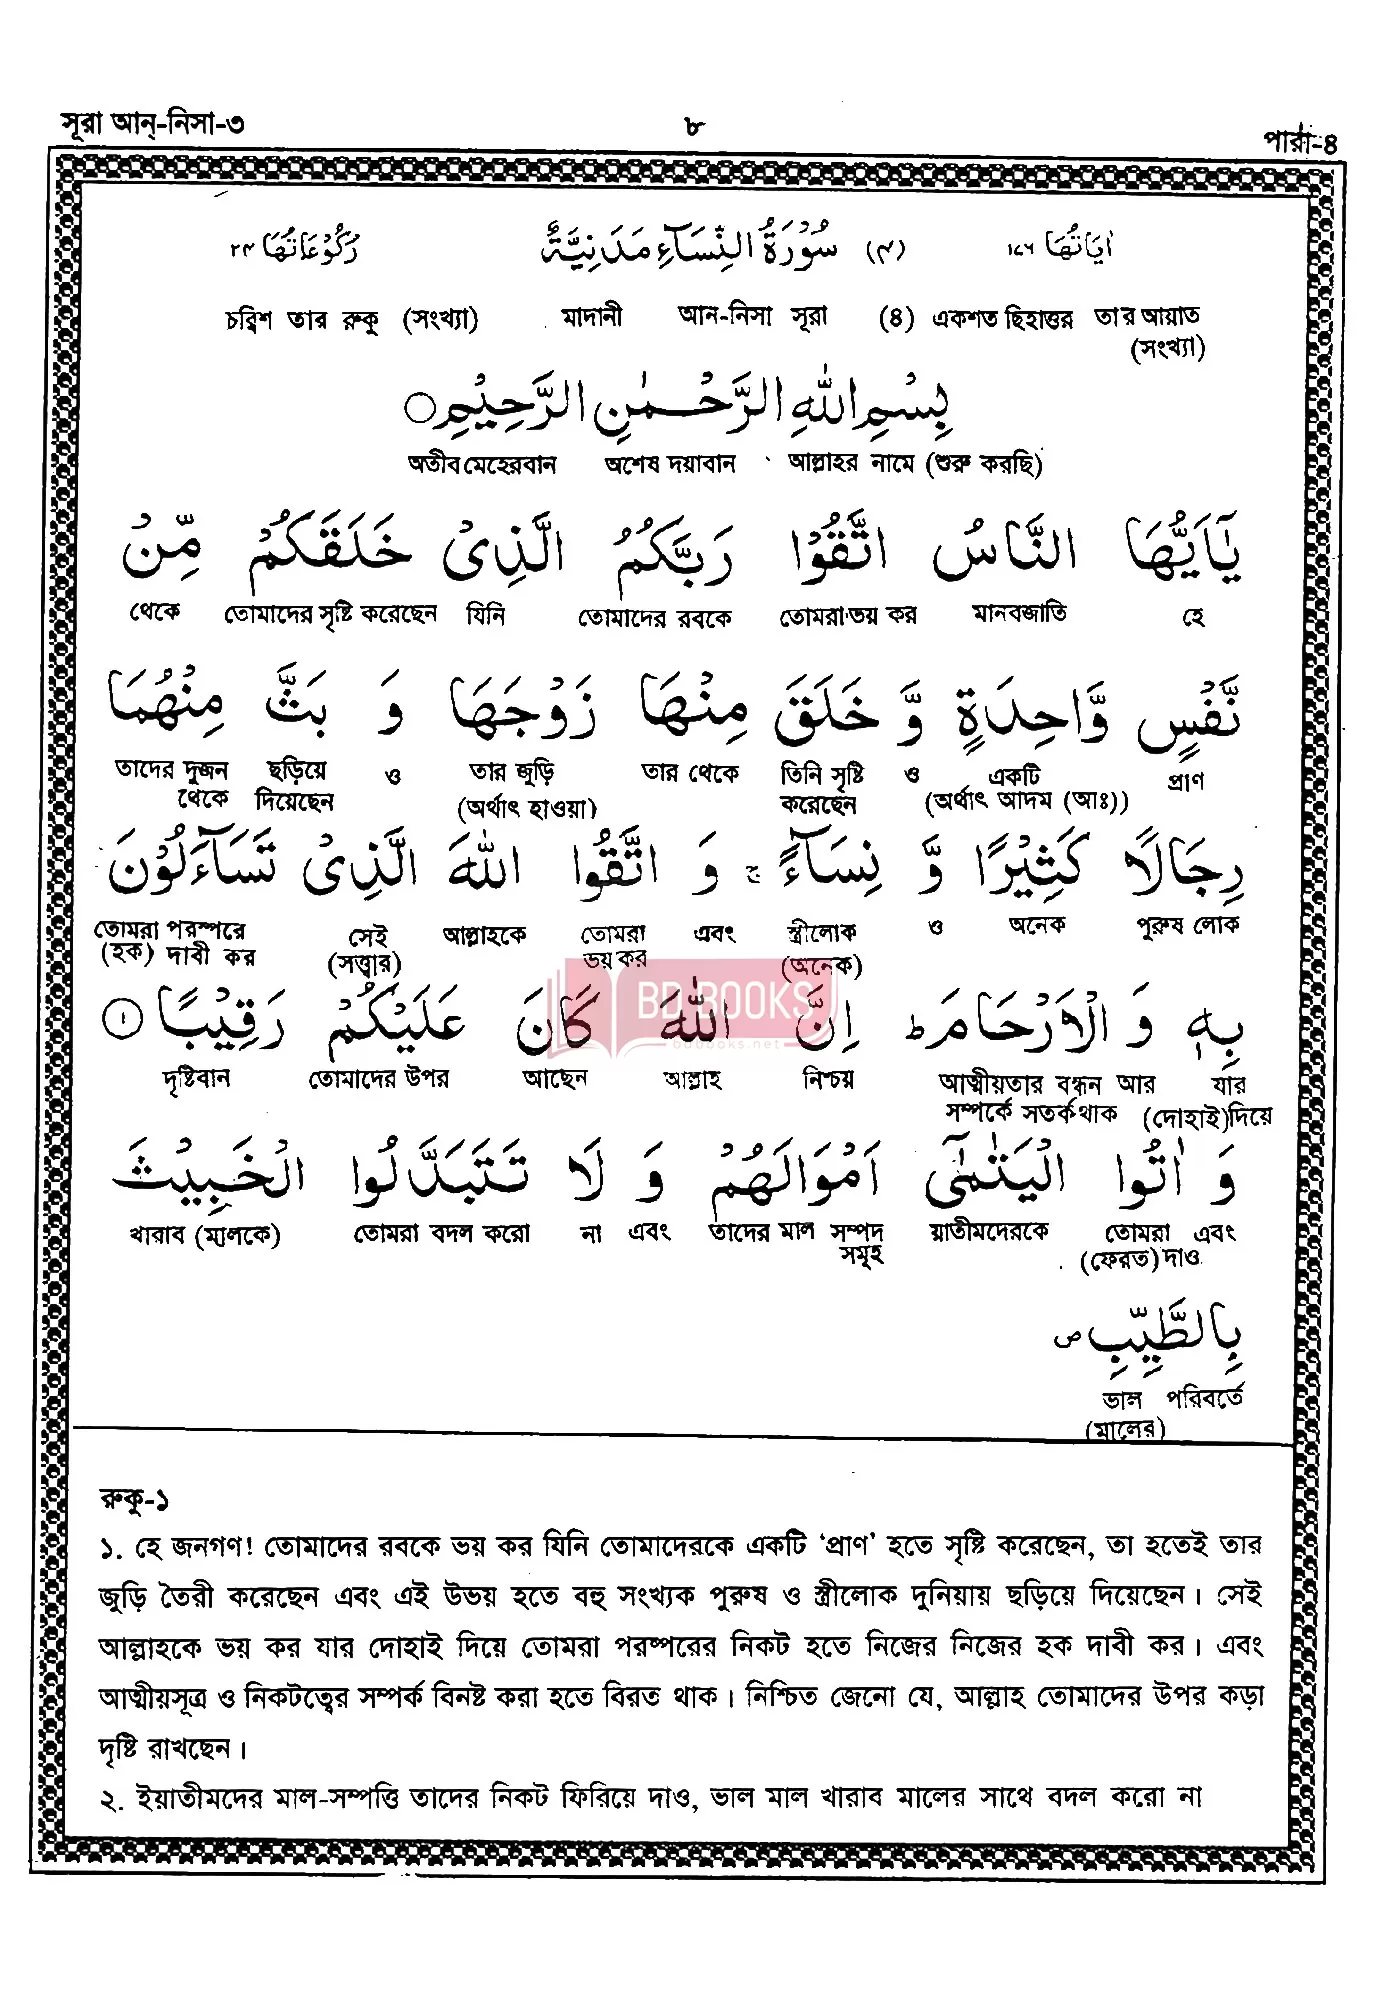 সূরা আন্-নিসা-৩ ৮ পারা-৪
اٰيَاتُهَا ١٧٦ (٤) سُوْرَةُ النِّسَآءِ مَدَنِيَّةٌ رُكُوْعَاتُهَا ٢٤
চব্বিশ তার রুকু (সংখ্যা) মাদানী আন-নিসা সূরা (৪) একশত ছিহাত্তর তার আয়াত
(সংখ্যা)
بِسْمِ اللّٰهِ الرَّحْمٰنِ الرَّحِيْمِ ○
অতীব মেহেরবান অশেষ দয়াবান আল্লাহর নামে (শুরু করছি)
يٰٓاَيُّهَا النَّاسُ اتَّقُوْا رَبَّكُمُ الَّذِىْ خَلَقَكُمْ مِّنْ
থেকে তোমাদের সৃষ্টি করেছেন যিনি তোমাদের রবকে তোমরা ভয় কর মানবজাতি হে
نَّفْسٍ وَّاحِدَةٍ وَّ خَلَقَ مِنْهَا زَوْجَهَا وَ بَثَّ مِنْهُمَا
তাদের দুজন ছড়িয়ে ও তার জুড়ি তার থেকে তিনি সৃষ্টি ও একটি প্রাণ
থেকে দিয়েছেন (অর্থাৎ হাওয়া) করেছেন (অর্থাৎ আদম (আঃ))
رِجَالًا كَثِيْرًا وَّ نِسَآءً ج وَ اتَّقُوا اللّٰهَ الَّذِىْ تَسَآءَلُوْنَ
তোমরা পরস্পরে সেই আল্লাহকে তোমরা এবং স্ত্রীলোক ও অনেক পুরুষ লোক
(হক) দাবী কর (সত্ত্বার) ভয় কর (অনেক)
BD BOOKS
بِهٖ وَ الْاَرْحَامَ ط اِنَّ اللّٰهَ كَانَ عَلَيْكُمْ رَقِيْبًا ١
bdbooks.net
দৃষ্টিবান তোমাদের উপর আছেন আল্লাহ নিশ্চয় আত্মীয়তার বন্ধন আর যার
সম্পর্কে সতর্কথাক (দোহাই)দিয়ে
وَ اٰتُوا الْيَتٰمٰٓى اَمْوَالَهُمْ وَ لَا تَتَبَدَّلُوا الْخَبِيْثَ
খারাব (মালকে) তোমরা বদল করো না এবং তাদের মাল সম্পদ য়াতীমদেরকে তোমরা এবং
সমূহ (ফেরত)দাও
بِالطَّيِّبِ ص
ভাল পরিবর্তে
(মালের)
রুকু-১
১. হে জনগণ! তোমাদের রবকে ভয় কর যিনি তোমাদেরকে একটি ‘প্রাণ’ হতে সৃষ্টি করেছেন, তা হতেই তার
জুড়ি তৈরী করেছেন এবং এই উভয় হতে বহু সংখ্যক পুরুষ ও স্ত্রীলোক দুনিয়ায় ছড়িয়ে দিয়েছেন। সেই
আল্লাহকে ভয় কর যার দোহাই দিয়ে তোমরা পরষ্পরের নিকট হতে নিজের নিজের হক দাবী কর। এবং
আত্মীয়সূত্র ও নিকটত্বের সম্পর্ক বিনষ্ট করা হতে বিরত থাক। নিশ্চিত জেনো যে, আল্লাহ তোমাদের উপর কড়া
দৃষ্টি রাখছেন।
২. ইয়াতীমদের মাল-সম্পত্তি তাদের নিকট ফিরিয়ে দাও, ভাল মাল খারাব মালের সাথে বদল করো না